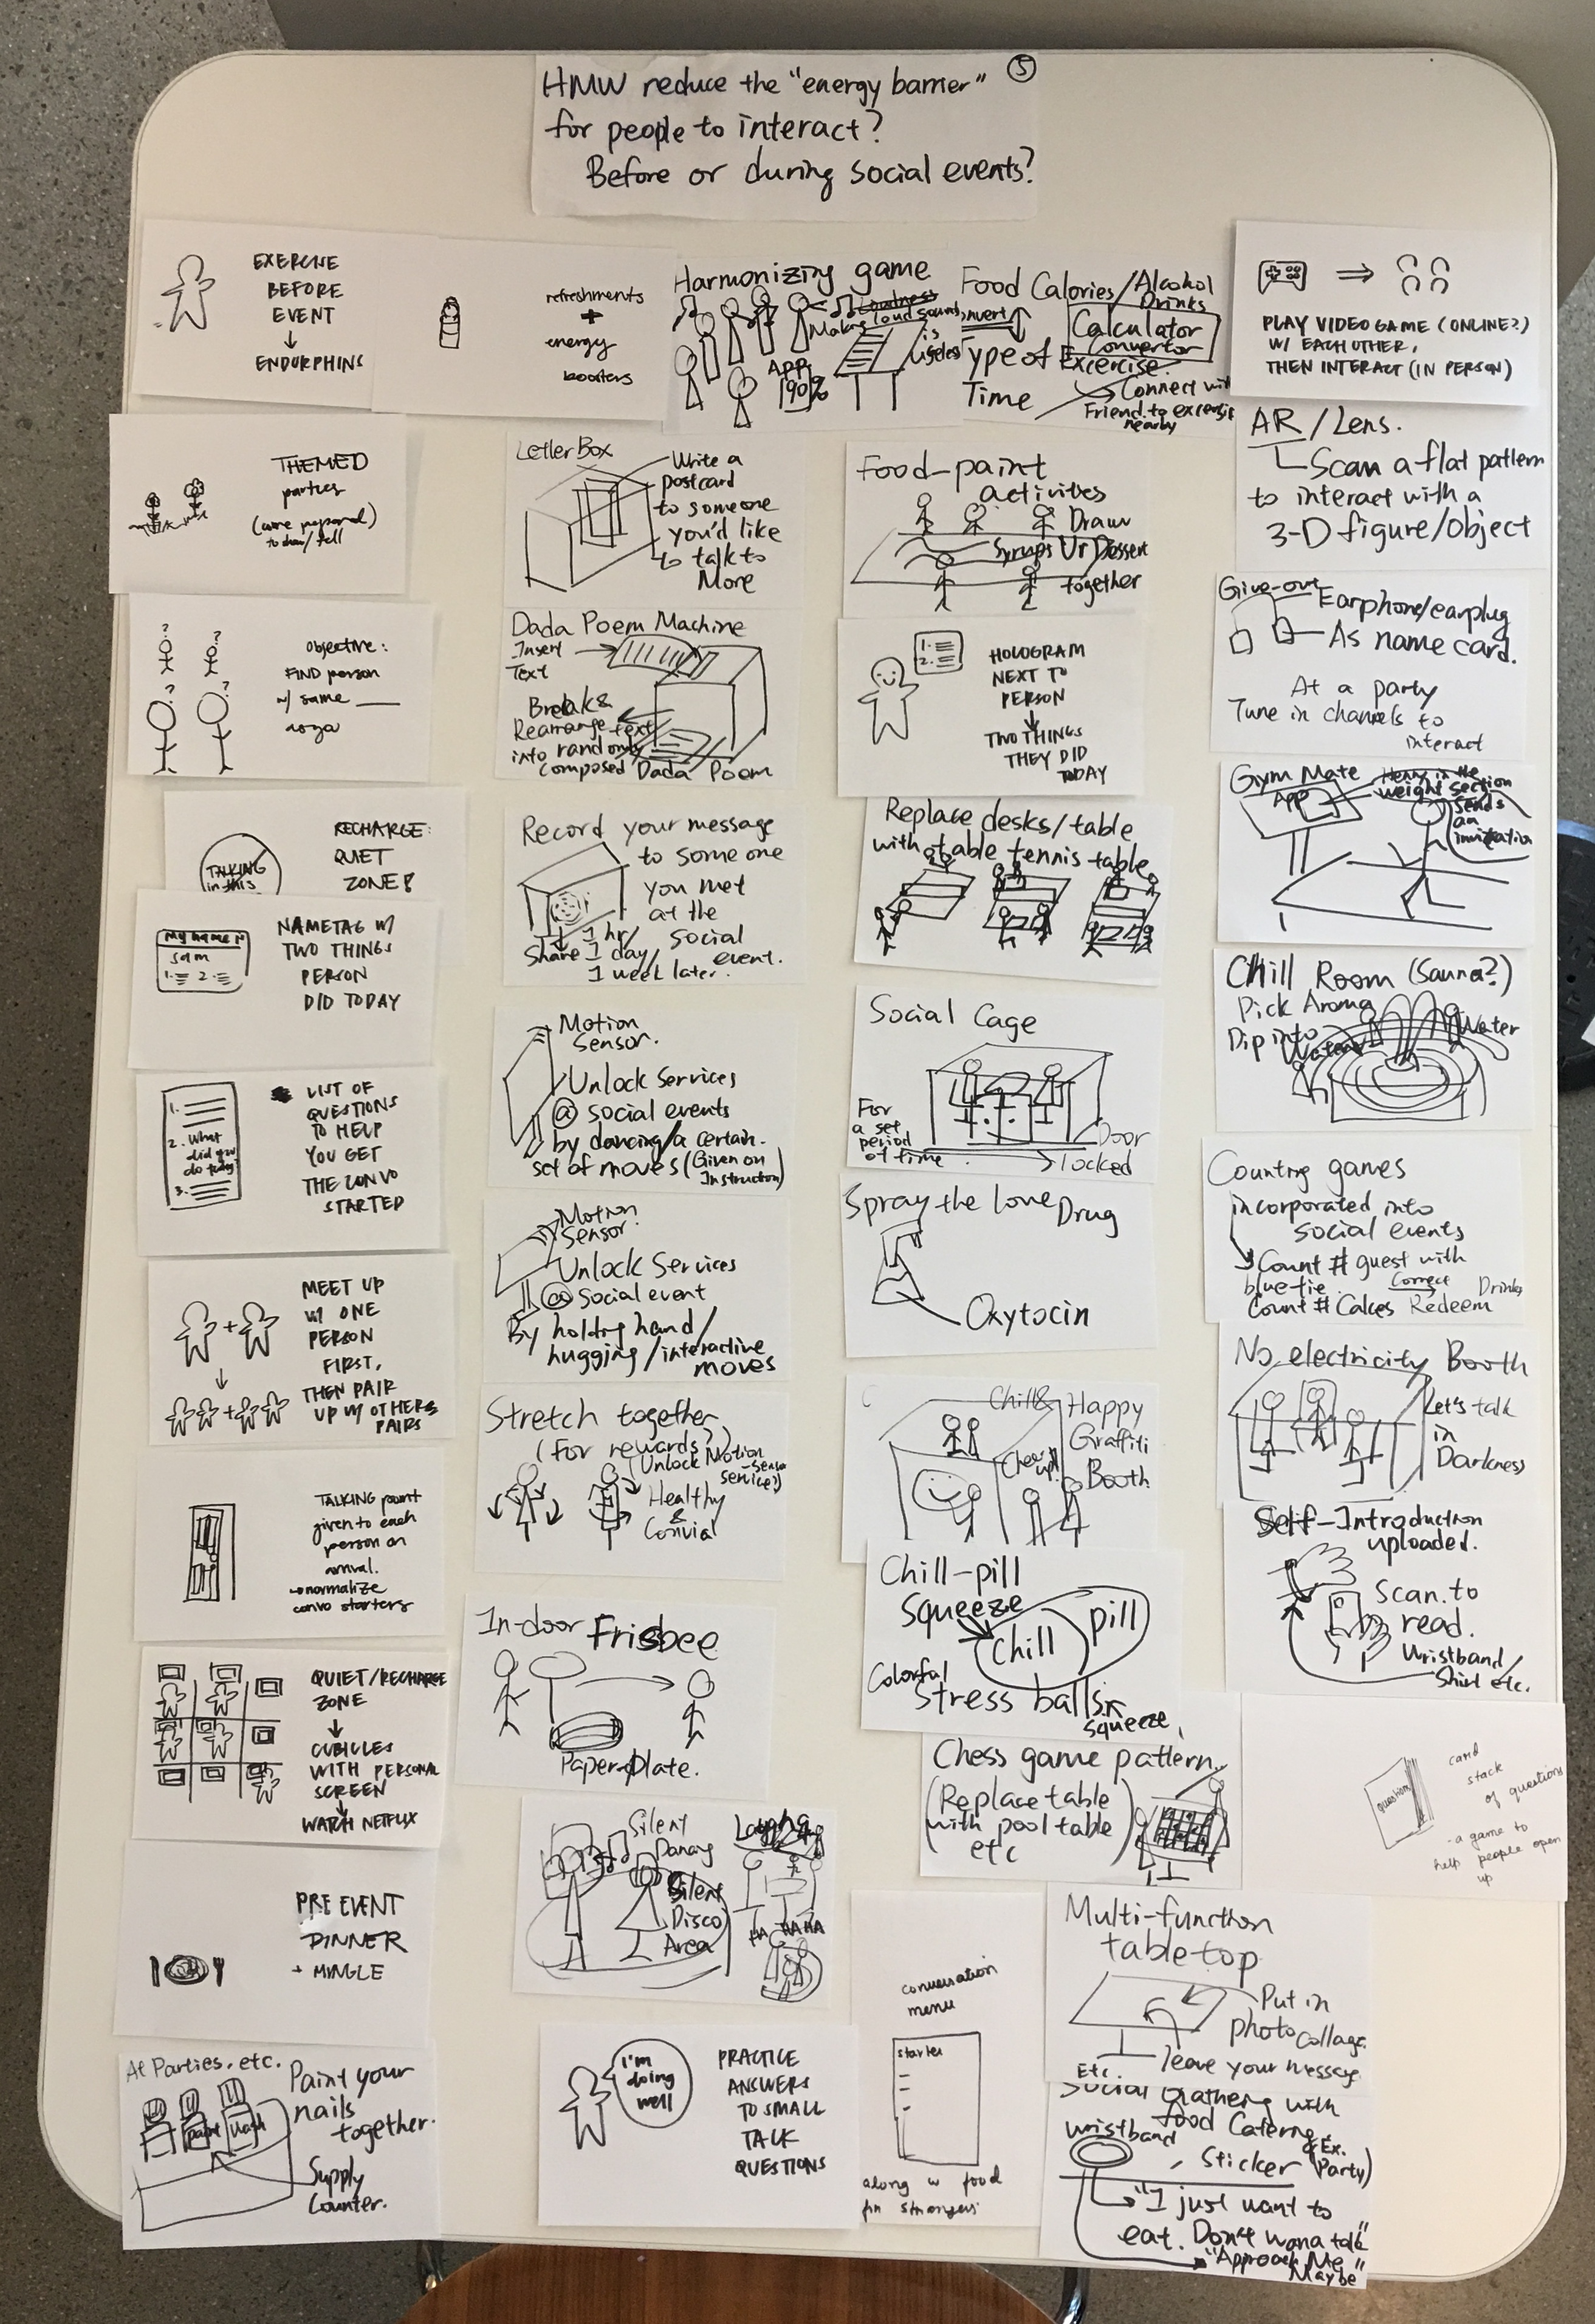 HMW reduce the "energy barrier" ⑤
for people to interact?
Before or during social events?
EXERCISE
BEFORE
EVENT
↓
ENDORPHINS
refreshments
+
energy
boosters
Harmonizing game
Making loud sound
is
useless
App
90%
Food Calories/Alcohol
Drinks
Calculator
Convertor
Type of Excercise
Time
Connect with
Friend to excersise
nearby
PLAY VIDEO GAME (ONLINE?)
W/ EACH OTHER,
THEN INTERACT (IN PERSON)
THEMED
parties
(come prepared)
to share/tell
Letter Box
Write a
postcard
to someone
you'd like
to talk to
More
Food-paint
activities
Draw
Syrups Ur Dessert
together
AR/Lens.
Scan a flat pattern
to interact with a
3-D figure/object
?
?
?
?
objective:
FIND person
w/ same ___
as you
Dada Poem Machine
Insert
Text
Break &
Rearrange text
into randomly
composed Dada Poem
1.
2.
HOLOGRAM
NEXT TO
PERSON
↓
TWO THINGS
THEY DID
TODAY
Give-out
Earphone/earplug
As name card.
At a party
Tune in channels to
interact
TALKING
in this
RECHARGE:
QUIET
ZONE!
Record your message
to someone
you met
at the
social
event.
Share 1 hr/
1 day/
1 week later.
Replace desks/table
with table tennis table
Gym Mate
App
Henry in the
weight section
Sends
an
invitation
My name is
Sam
1. 2.
NAMETAG W/
TWO THINGS
PERSON
DID TODAY
Motion
Sensor.
Unlock Services
@ social events
by dancing/a certain
set of moves (Given on
Instruction)
Social Cage
For
a set
period
of time
Door
locked
Chill Room (Sauna?)
Pick Aroma
Dip into
Water
Water
1.
2. What
did you
do today?
3.
LIST OF
QUESTIONS
TO HELP
YOU GET
THE CONVO
STARTED
Motion
Sensor.
Unlock Services
@ social event
By holding hand/
hugging/interactive
moves
Spray the love Drug
Oxytocin
Counting games
incorporated into
social events
Count # guest with
blue tie
Count # Cakes
Correct
Redeem
Drinks
MEET UP
W/ ONE
PERSON
FIRST,
THEN PAIR
UP W/ OTHER
PAIRS
Stretch together
(For rewards?)
(Unlock Motion
-Sensor
service?)
Healthy
&
Convial
Chill &
Happy
Graffiti
Booth
Cheer
up!
No electricity Booth
Let's talk
in
Darkness
TALKING point
given to each
person on
arrival.
→normalize
convo starters
In-door Frisbee
Paper-plate.
Chill-pill
Squeeze
Chill
pill
Colorful
Stress balls
squeeze
Self-Introduction
uploaded.
Scan to
read.
Wristband/
Shirt etc.
QUIET/RECHARGE
ZONE
↓
CUBICLES
WITH PERSONAL
SCREEN
↓
WATCH NETFLIX
Silent
Dancing
Silent
Disco
Area
HA HAHA
Chess game pattern
(Replace table
with pool table)
etc
question
card
stack
of questions
-a game to
help people open
up
PRE EVENT
DINNER
+ MINGLE
I'm
doing
well
PRACTICE
ANSWERS
TO SMALL
TALK
QUESTIONS
conversation
menu
starter
along w food
for strangers
Multi-function
table-top
Put in
photo collage.
leave your message
Etc.
At Parties, etc.
Paint your
nails
together.
Supply
Counter.
Social Gathering with
food Catering
(Ex.
Party)
wristband
, Sticker
"I just want to
eat. Don't wana talk"
"Approach Me
Maybe"